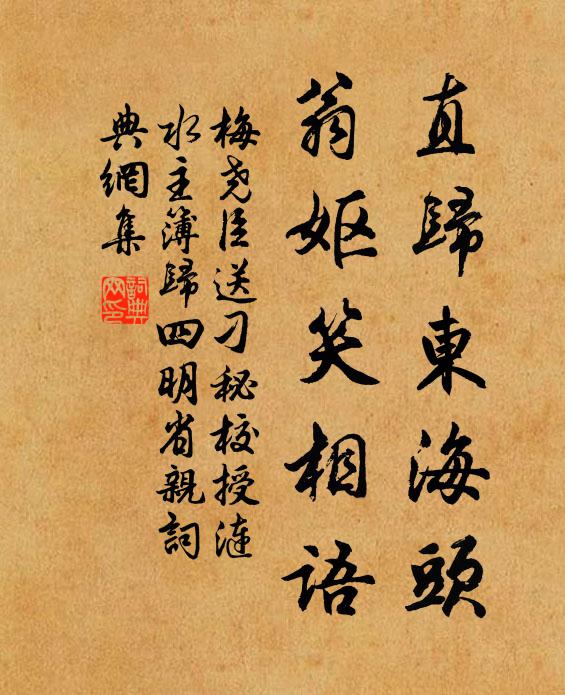 直歸東海頭
翁嫗笑相語
梅堯臣送刁秘校授漣
水主簿歸四明省親詞
典網集
詞典
网印